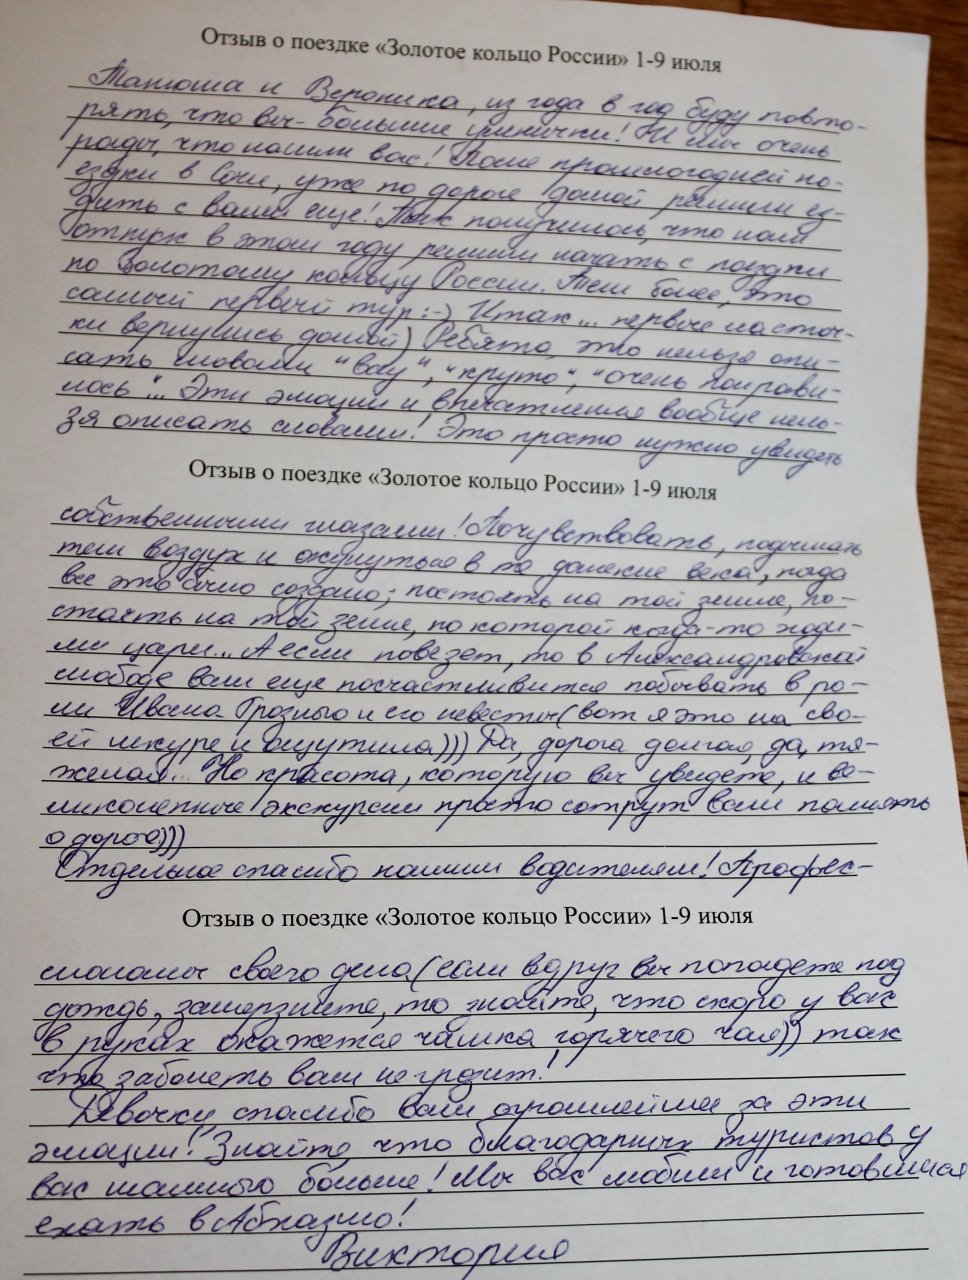 Отзыв о поездке «Золотое кольцо России» 1-9 июля
Танюша и Вероника, из года в год буду повто-
рять, что вы - большие умнички! И мы очень
рады, что нашли вас! После прошлогодней по-
ездки в Сочи, уже по дороге домой решили ез-
дить с вами еще! Так получилось, что наш
отпуск в этом году решили начать с поездки
по Золотому кольцу России. Тем более, это
самый первый тур :-) Итак... первые ласточ-
ки вернулись домой) Ребята, это нельзя опи-
сать словами "вау", "круто", "очень понрави-
лось"... Эти эмоции и впечатления вообще нель-
зя описать словами! Это просто нужно увидеть
Отзыв о поездке «Золотое кольцо России» 1-9 июля
собственными глазами! Почувствовать, подышать
тем воздух и окунуться в те далекие века, когда
все это было создано; постоять на той земле, по-
стоять на той земле, по которой когда-то ходи-
ли цари... А если повезет, то в Александровской
слободе вам еще посчастливится побывать в ро-
ли Ивана Грозного и его невесты (вот я это на сво-
ей шкуре и ощутила))) Да, дорога долгая, да, тя-
желая... Но красота, которую вы увидете, и ве-
ликолепные экскурсии просто сотрут вам память
о дороге)))
Отдельное спасибо нашим водителям! Профес-
Отзыв о поездке «Золотое кольцо России» 1-9 июля
сионалы своего дела (если вдруг вы попадете под
дождь, замерзните, то знайте, что скоро у вас
в руках окажется чашка горячего чая)) так
что заболеть вам не грозит!
Девочки, спасибо вам огромнейшее за эти
эмоции! Знайте, что благодарных туристов у
вас намного больше! Мы вас любим и готовимся
ехать в Абхазию!
Виктория